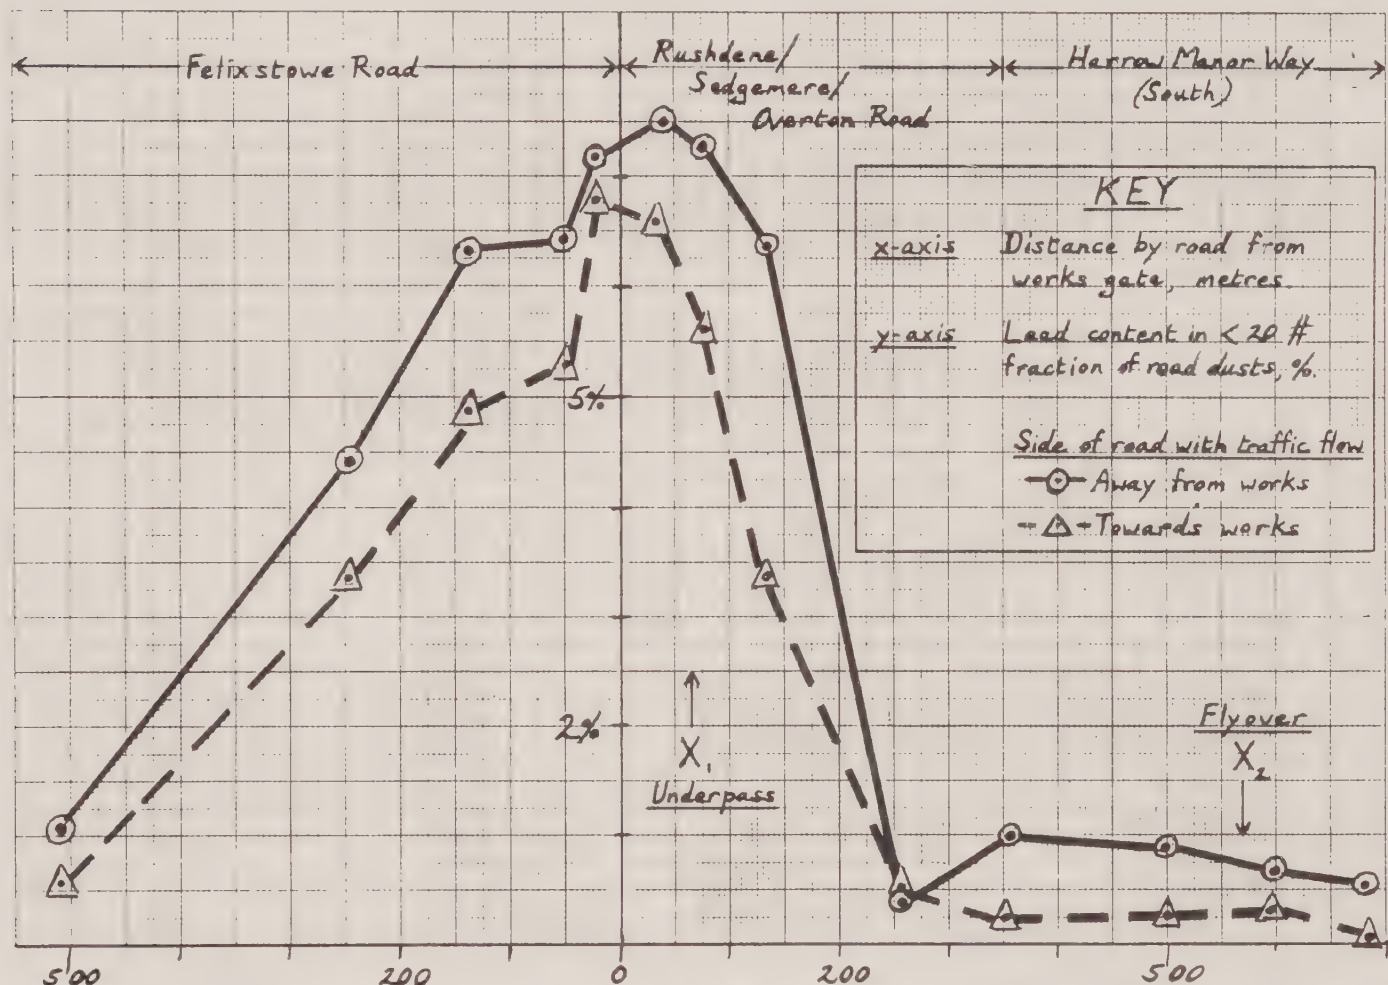 Felixstowe Road
Rushdene/
Sedgemere/
Overton Road
Harrow Manor Way
(South)
KEY
x-axis Distance by road from
works gate, metres.
y-axis Lead content in < 20 #
fraction of road dusts, %.
Side of road with traffic flow
Away from works
Towards works
5%
2%
X₁
Underpass
Flyover
X₂
500 200 0 200 500